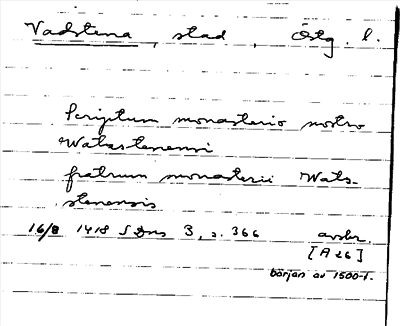 Vadstena, stad, Östg. l.
Scriptum monasterio nostro
Watzstenensi
fratrum monasterii Wats-
stenensis
16/8 1418 SDns 3, s. 366 avskr.
[A 26]
början av 1500-t.